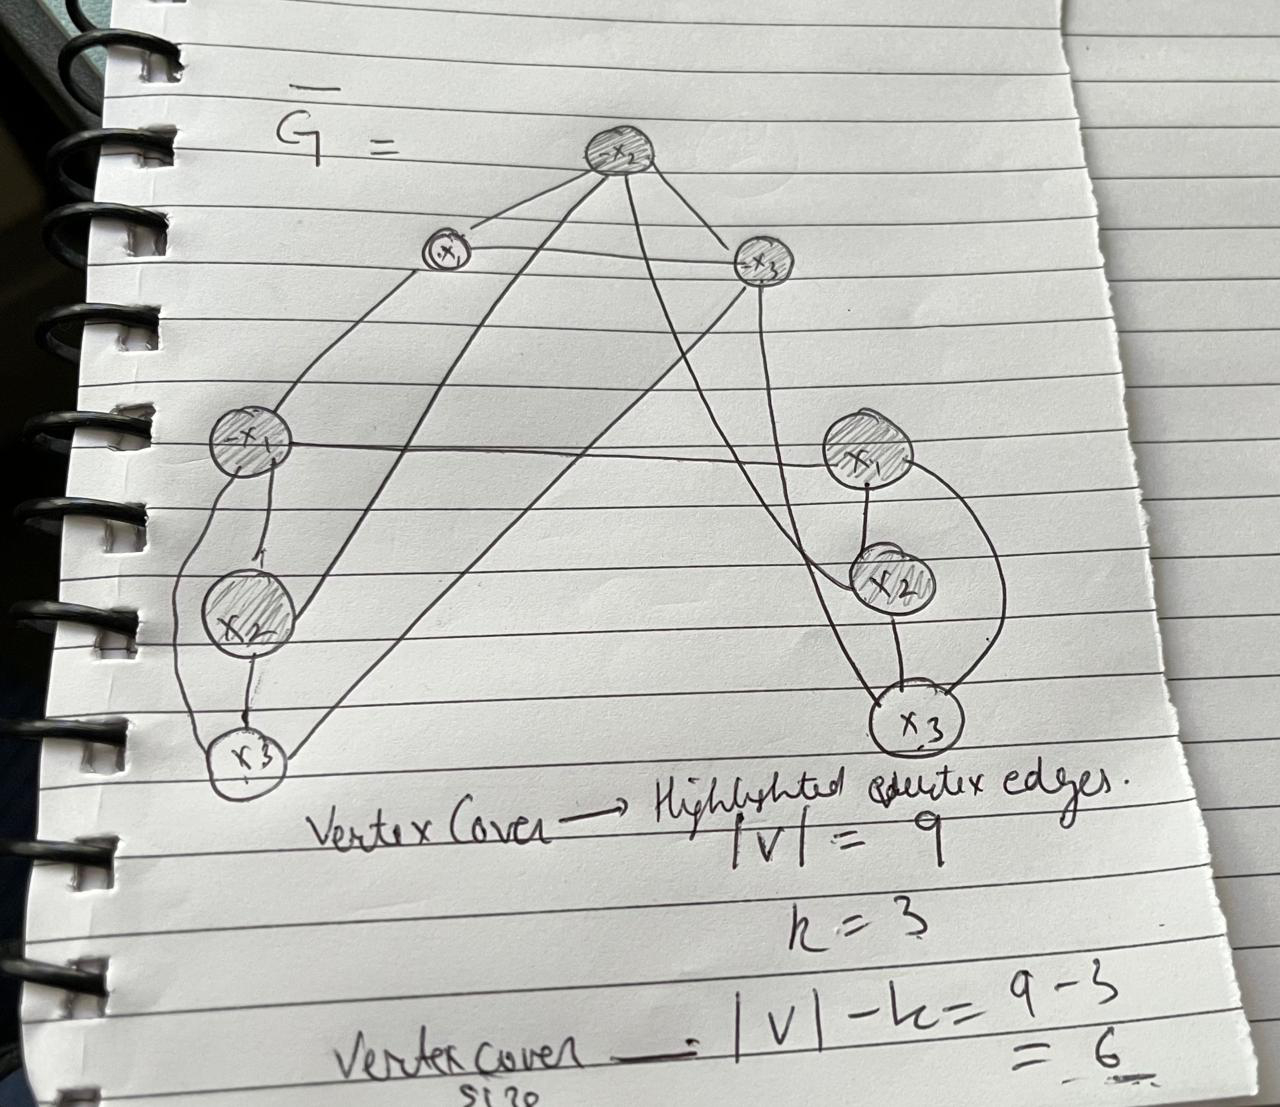 G̅ =
¬x₂
x₁
¬x₃
¬x₁
x₁
x₂
x₂
x₃
x₃
Vertex Cover → Highlighted vertex edges.
|V| = 9
k = 3
Vertex cover size = |V| - k = 9 - 3
= 6